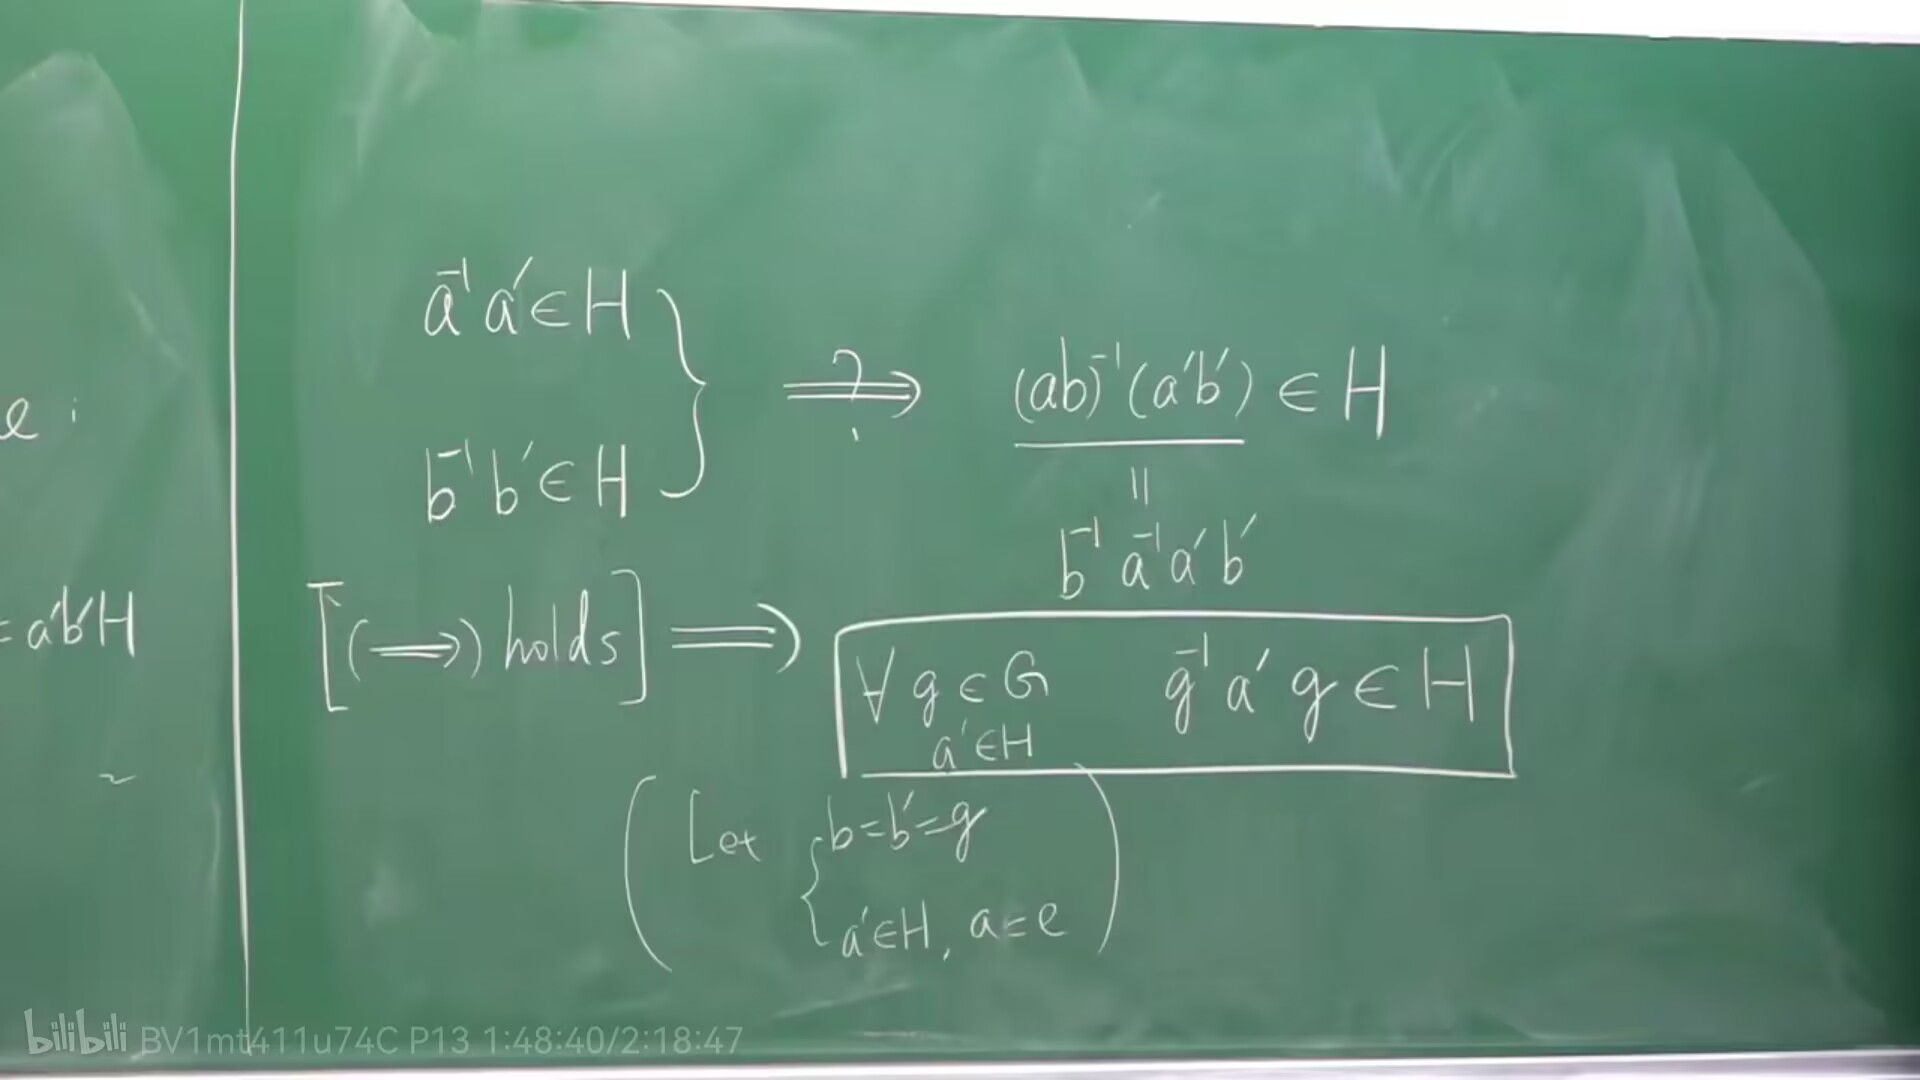 e :
= a'b'H
~
a⁻¹ a' ∈ H
b⁻¹ b' ∈ H
} ⟹ ? (ab)⁻¹ (a'b') ∈ H
||
b⁻¹ a⁻¹ a' b'
[(⟹) holds] ⟹ ∀ g ∈ G g⁻¹ a' g ∈ H
a' ∈ H
( Let { b = b' = g
a' ∈ H, a = e )
bilibili BV1mt411u74C P13 1:48:40/2:18:47